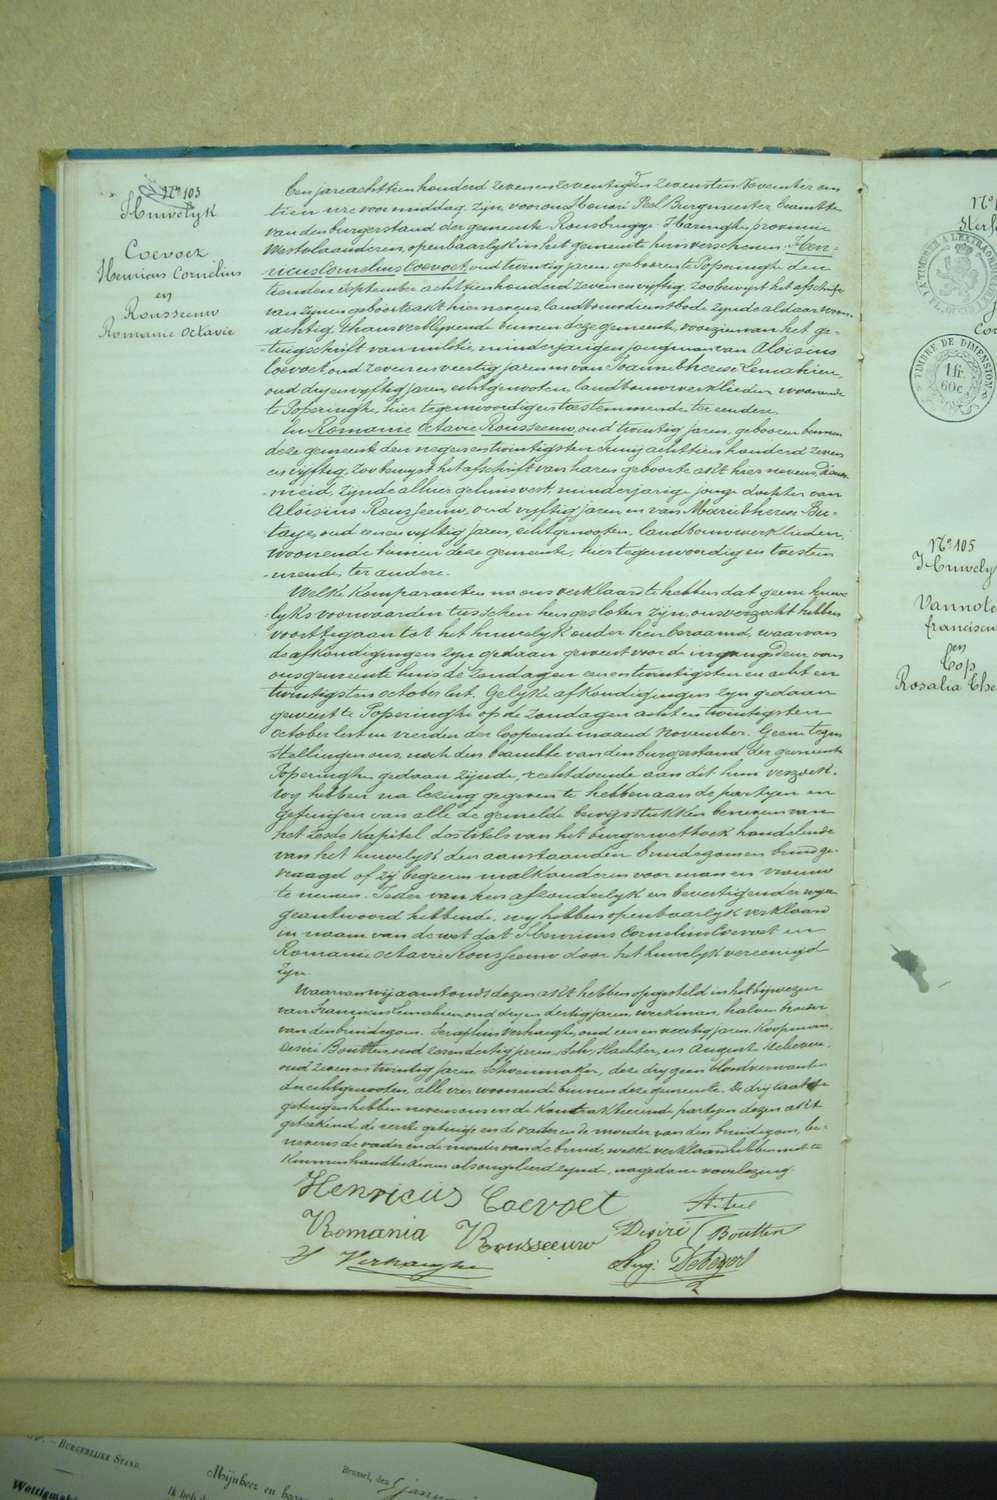 Nº 103
Huwelyk
Coevoez
Henricus Cornelius
en
Rousseeuw
Romanie Octavie
Een jare achttien honderd zeven en zeventig den zevensten November om
tien ure voormiddag. Zyn voor ons Henri Peel Burgmeester beambte
van den burgerstand der gemeente Rousbrugge Haringhe provincie
Westvlaanderen, openbaarlyk in het gemeente huis verschenen. Hen-
ricus Cornelius Coevoet, oud twintig jaren, geboren te Poperinghe den
tienden September achttienhonderd zeven en vyftig, zoo bewyst het afschrift
van zynen geboorte akt hier nevens, landbouwdienstbode zynde aldaar woon-
achtig, thans verblyvende binnen deze gemeente, voorzien van het ge-
tuigschrift van militie, minderjarigen jongman van Aloïsius
Coevoet, oud zeven en veertig jaren en van Joanna Theresia Lemahieu,
oud dry en vyftig jaren, echtgenooten, landbouwwerklieden, woonende
te Poperinghe, hier tegenwoordig en toestemmende ter eendere.
En Romanie Octavie Rousseeuw, oud twintig jaren, geboren binnen
deze gemeente den negen en twintigsten Juny achttien honderd zeven
en vyftig, zoo bewyst het afschrift van haren geboorte akt hier nevens, dienst-
meid, zynde alhier gehuisvest, minderjarige jonge dochter van
Aloisius Rousseeuw, oud vyftig jaren en van Marie Therese Bu-
taye, oud een en vyftig jaren, echtgenooten, landbouwwerklieden,
woonende binnen deze gemeente, hier tegenwoordig en toestem-
mende, ter andere.
Welke komparanten na ons verklaard te hebben dat geene huwe-
lyks voorwaarden tusschen hen gesloten zyn, ons verzocht hebben
voort te gaan tot het huwelyk onder hen beraamd, waarvan
de afkondigingen zyn gedaan geweest voor de ingangdeur van
ons gemeente huis de zondagen een en twintigsten en acht en
twintigsten october lest. Gelyke afkondigingen zyn gedaan
geweest te Poperinghe op de zondagen acht en twintigsten
october lest en vierden der loopende maand November. Geene tegen-
stellingen ons, noch den beambte van den burgerstand der gemeente
Poperinghe gedaan zynde, rechtdoende aan dit hun verzoek.
Wy hebben na lezing gegeven te hebben aan de partyen en
getuigen van alle de gemelde bewysstukken benevens van
het zesde kapitel des titels van het burgerwetboek handelende
van het huwelyk den aanstaanden bruidegom en bruid ge-
vraagd of zij begeeren malkanderen voor man en vrouw
te nemen. Ieder van hen afzonderlyk en bevestigender wyze
geantwoord hebbende, wy hebben openbaarlyk verklaard
in naam van de wet dat Henricus Cornelius Coevoet en
Romanie Octavie Rousseeuw door het huwelyk vereenigd
zyn.
Waarvan wij aanstonds dezen akt hebben opgesteld in het bijwezen
van Franciscus Lemahieu oud dry en dertig jaren, werkman, halven broeder
van den bruidegom. Seraphin Verhaeghe, oud een en veertig jaren, koopman,
Desiré Boutten, oud zes en dertig jaren, Slachter, en Auguste Debever,
oud zeven en twintig jaren Schoenmaker, deze dry geen bloedverwanten
der echtgenooten, alle vier woonende binnen deze gemeente. De dry laatste
getuigen hebben nevens ons en de kontrakteerende partyen dezen akt
geteekend, de eerste getuige en de vader en de moeder van den bruidegom, be-
nevens de vader en de moeder van de bruid, welke verklaard hebben niet te
kunnen handteekenen als ongeleerd zynde, na gedane voorlezing.
Henricus Coevoet
H. Peel
Romania Rousseeuw
Desiré Boutten
S Verhaeghe
Aug. Debever
Nº 1
Sterf
TIMBRE DE DIMENSION
1 fr.
60 c.
Cor
Nº 105
Huwely
Vannote
franciscu
en
Cop
Rosalia The
BURGERLIJKE STAND.
Brussel, den 5 janua
Mijnheer en
Ik heb de